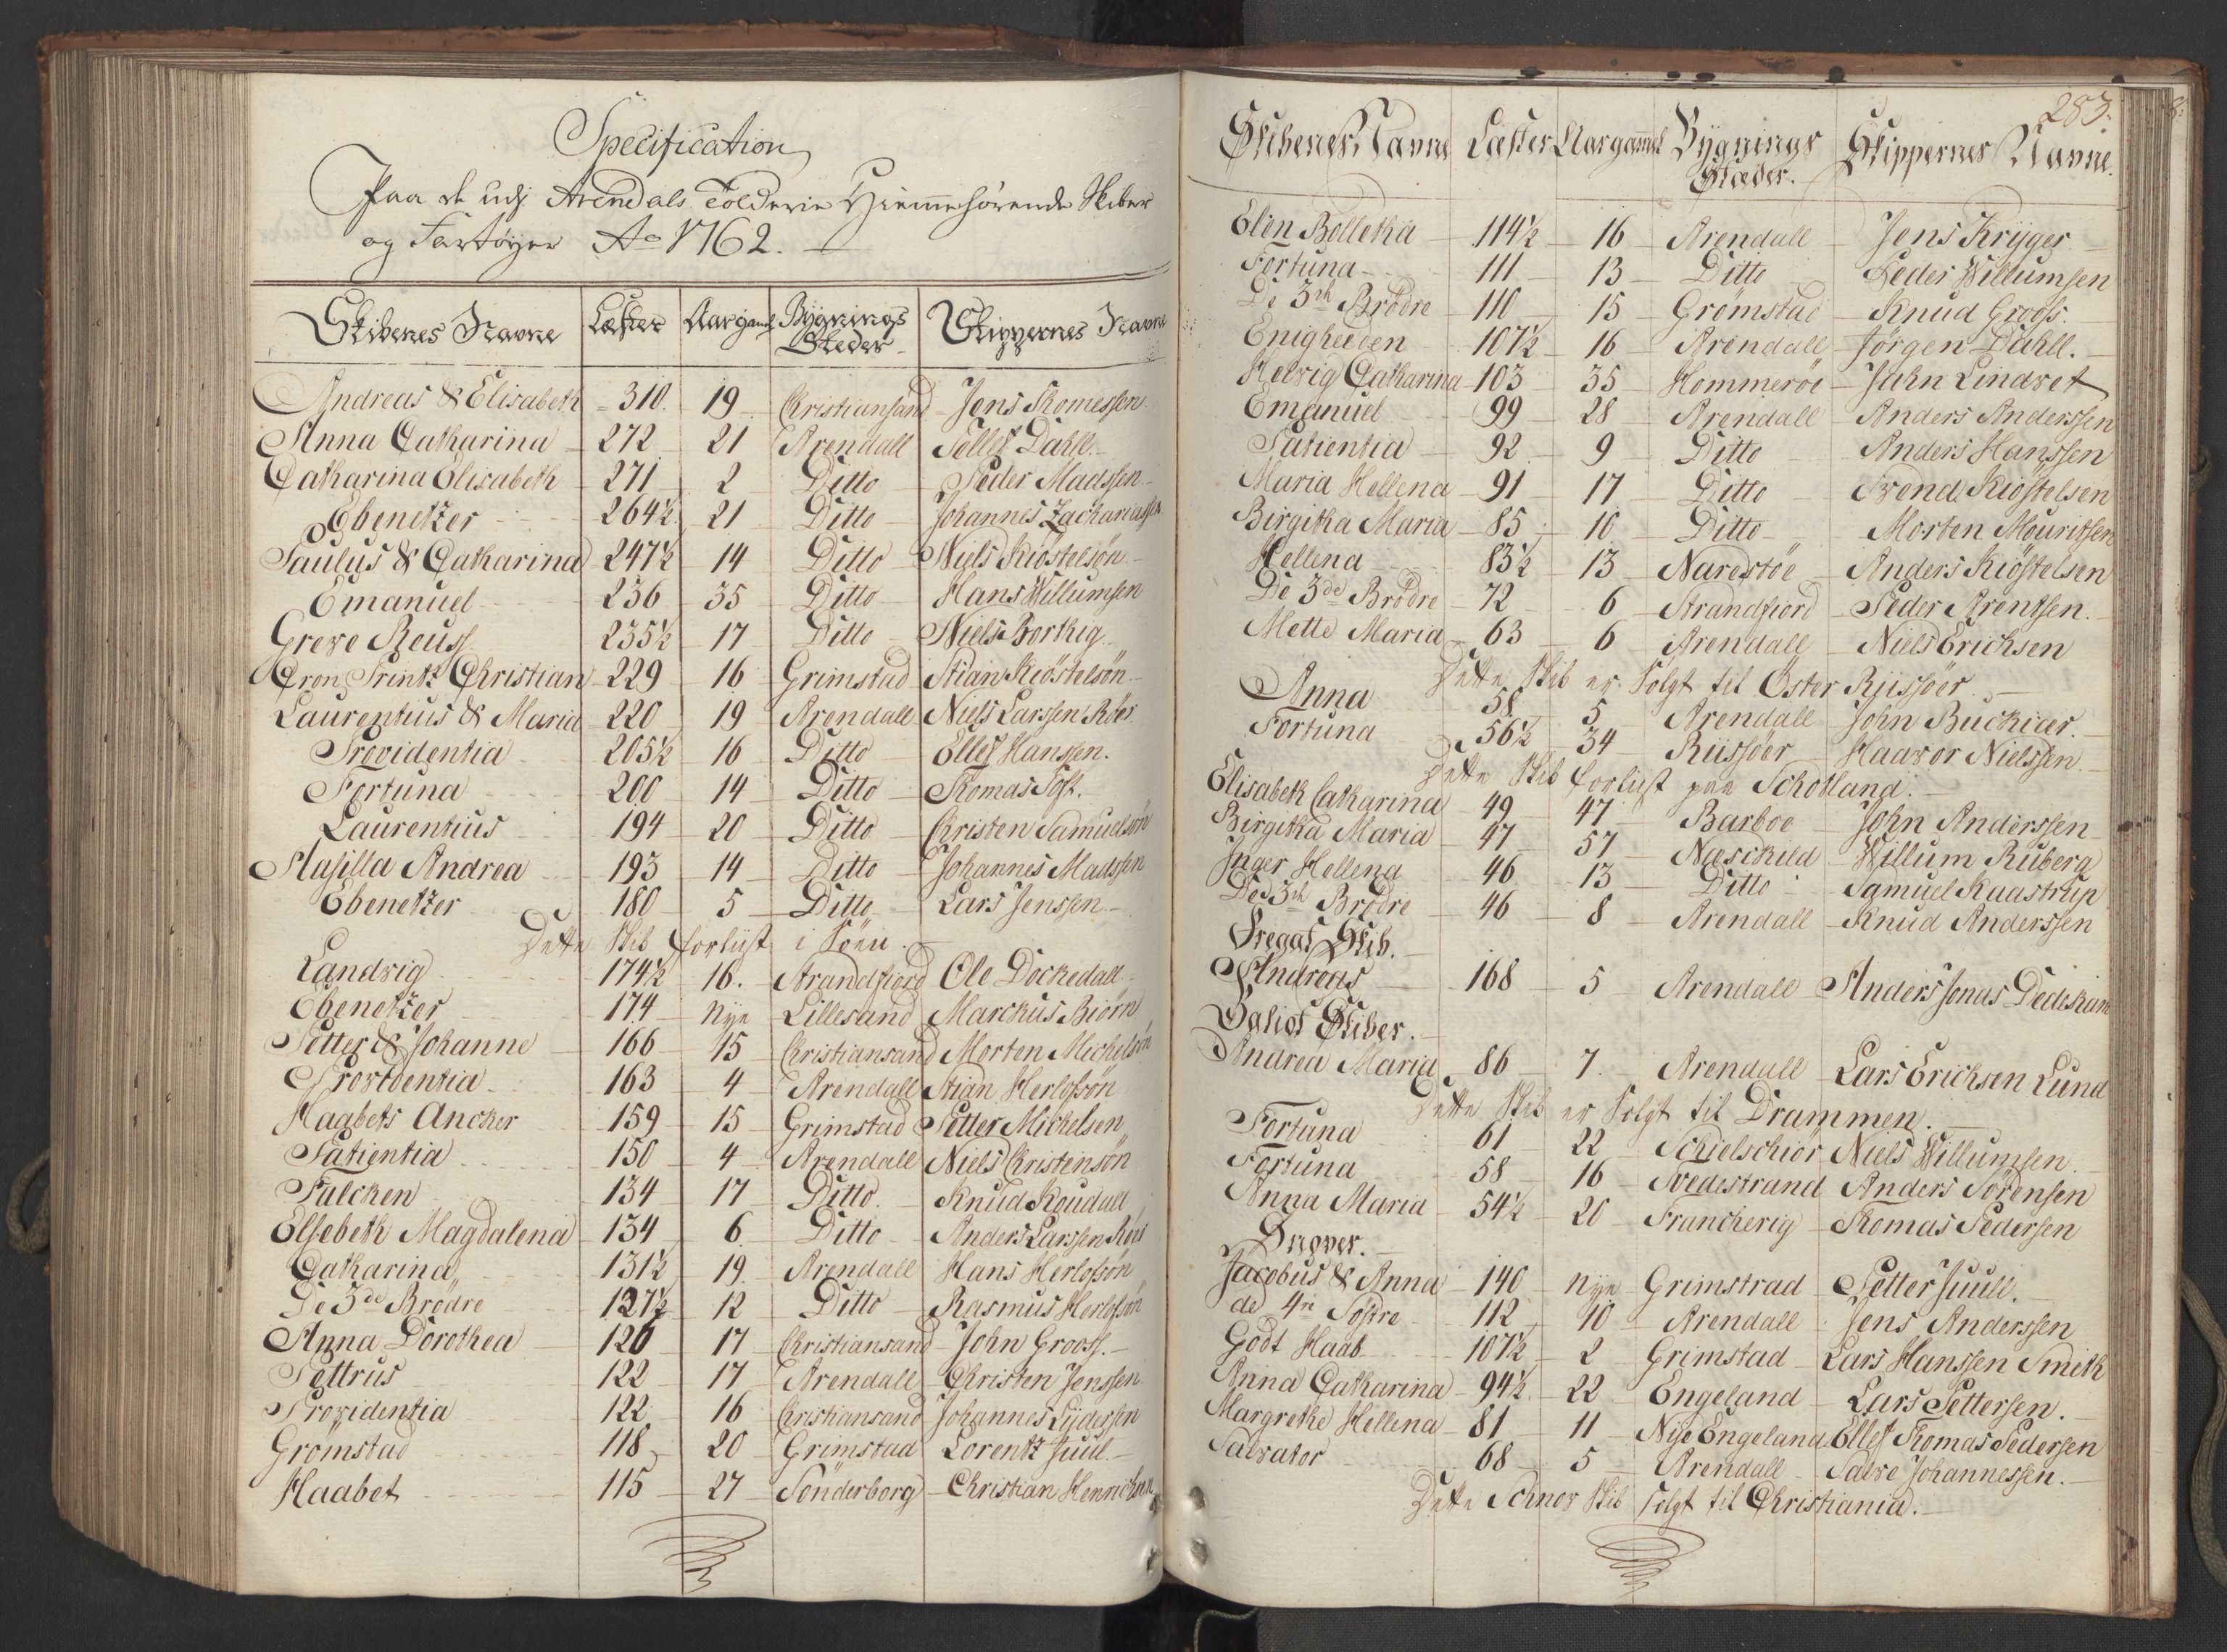 Specification
Paa de udj Arendals Tolderie Hiemmehørende Skiber
og Fartøyer Ao 1762.
Skibenes Navne Læster Aar gaml Bygnings Steder Skippernes Navne
Andreas & Elisabeth 310. 19 Christiansand Jens Thomessen
Anna Catharina 272 21 Arendall Tellef Dahll
Catharina Elisabeth 271 2 Ditto Peder Madssen
Ebenetzer 264½ 21 Ditto Johannes Zachariassen
Paulus & Catharina 247½ 14 Ditto Niels Kiöstelsön
Emanuel 236 35 Ditto Hans Willumsen
Greve Reuss 235½ 17 Ditto Niels Borthig
Cron Printz Christian 229 16 Grimstad Stian Kiöstelsön
Laurentius & Maria 220 19 Arendall Niels Larssen Röes
Providentia 205½ 16 Ditto Ellef Hansen.
Fortuna 200 14 Ditto Thomas Toft.
Laurentius 194 20 Ditto Christen Samuelsön
Hasilla Andrea 193 14 Ditto Johannes Madssen
Ebenetzer 180 5 Ditto Lars Jenssen
Dette Skib forliist i Söen.
Landvig 174½ 16. Strandfiord Ole Dockedall
Ebenetzer 174 Nye Lillesand Marckus Biörn
Petter & Johanne 166 15 Christiansand Morten Michelsön
Providentia 163 4 Arendall Stian Herlofsön
Haabets Ancker 159 15 Grimstad Petter Michelsen
Patientia 150 4 Arendall Niels Christensön
Fulcken 134 17 Ditto Knud Koudall
Elsebeth Magdalena 134 6 Ditto Anders Larssen Röes
Catharina 131½ 19 Arendall Hans Herlofsön
De 3de Brödre 127½ 12 Ditto Rasmus Herlofsön
Anna Dorothea 126 17 Christiansand John Grooss.
Pettrus 122 17 Arendall Christen Jenssen
Providentia 122 16 Christiansand Johannes Lydersen
Grömstad 118 20 Grimstad Lorentz Juul.
Haabet 115 27 Sönderborg Christian Henrichsen
283.
Skibenes Navne Læster Aar gammel Bygnings Stæder. Skippernes Navne.
Elen Bolletha 114½ 16 Arendall Jens Kryger
Fortuna 111 13 Ditto Peder Willumsen
De 3de Brödre 110 15 Grömstad Knud Grooss.
Enigheeden 107½ 16 Arendall Jörgen Dahll.
Helvig Catharina 103 35 Hommeröe Jahn Lindvet
Emanuel 99 28 Arendall Anders Anderssen
Patientia 92 9 Ditto Anders Hanssen
Maria Hellena 91 17 Ditto Svend Kiöstelsen
Birgitha Maria 85 10 Ditto Morten Mouritsen
Hellena 83½ 13 Narestöe Anders Kiöstelsen
De 3de Brödre 72 6 Strandfiord Peder Arentsen.
Mette Maria 63 6 Arendall Niels Erichsen
Dette Skib er Solgt til Öster Riissöer
Anna 58 5 Arendall John Buchier.
Fortuna 56½ 34 Riissöer Haavor Nielssen
Dette Skib forliist paa Schotland.
Elisabeth Catharina 49 47 Barboe John Anderssen
Birgitha Maria 47 57 Næschild Willum Ruberg
Inger Hellena 46 13 Ditto Samuel Kaastrup
De 3de Brödre 46 8 Arendall Knud Anderssen
Fregat Skib.
Andreas 168 5 Arendall Anders Jonas Dedekam
Galiot Skiber.
Andrea Maria 86 7. Arendall Lars Erichsen Lund
Dette Skib er Solgt til Drammen.
Fortuna 61 22 Schielschiör Niels Willumsen
Fortuna 58 16 Tvedestrand Anders Sörensen
Anna Maria 54½ 20 Francherig Thomas Pedersen
Snaver.
Jacobus & Anna 140 Nye Grimstrad Petter Juull.
de 4re Söstre 112 10 Arendall Jens Anderssen
Godt Haab 107½ 2 Grimstad Lars Hanssen Smith
Anna Catharina 94½ 22 Engeland Lars Pettersen.
Margrethe Hellena 81 11 Nye Engeland Ellef Thomas Pedersen
Salvator 68 5 Arendall Salve Johannessen.
Dette Schnov Skib Solgt til Christiania.